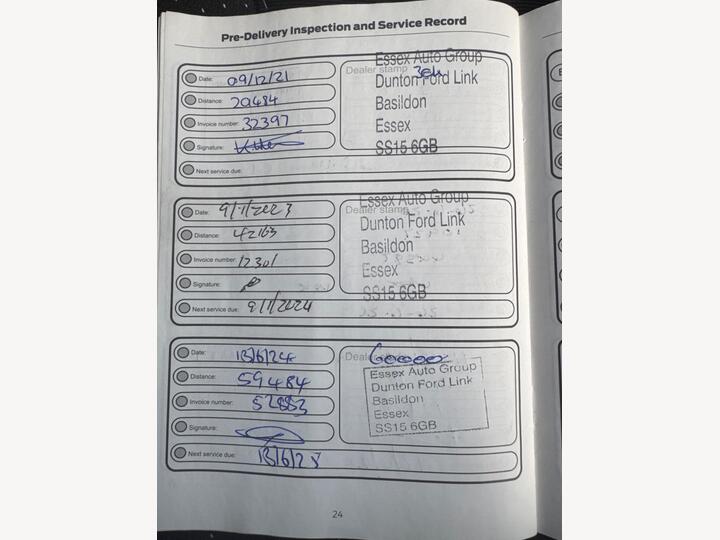 Pre-Delivery Inspection and Service Record
Date: 09/12/21
Distance: 20484
Invoice number: 32397
Signature:
Next service due:
Essex Auto Group
Dealer stamp
Dunton Ford Link
Basildon
Essex
SS15 6GB
Date: 9/1/2023
Distance: 42163
Invoice number: 12301
Signature:
Next service due: 9/1/2024
Essex Auto Group
Dealer stamp
Dunton Ford Link
Basildon
Essex
SS15 6GB
Date: 13/6/24
Distance: 59484
Invoice number: 52883
Signature:
Next service due: 13/6/25
60000
Essex Auto Group
Dunton Ford Link
Basildon
Essex
SS15 6GB
24